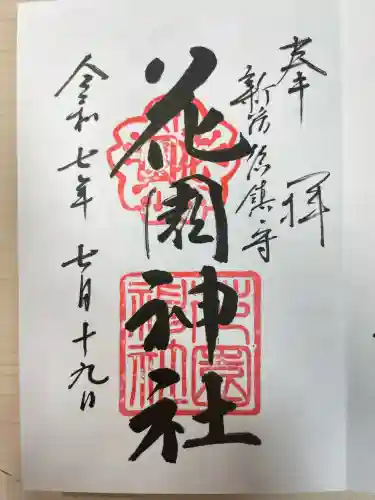 奉拝
新宿総鎮守
花園神社
花園神社
令和七年 七月十九日